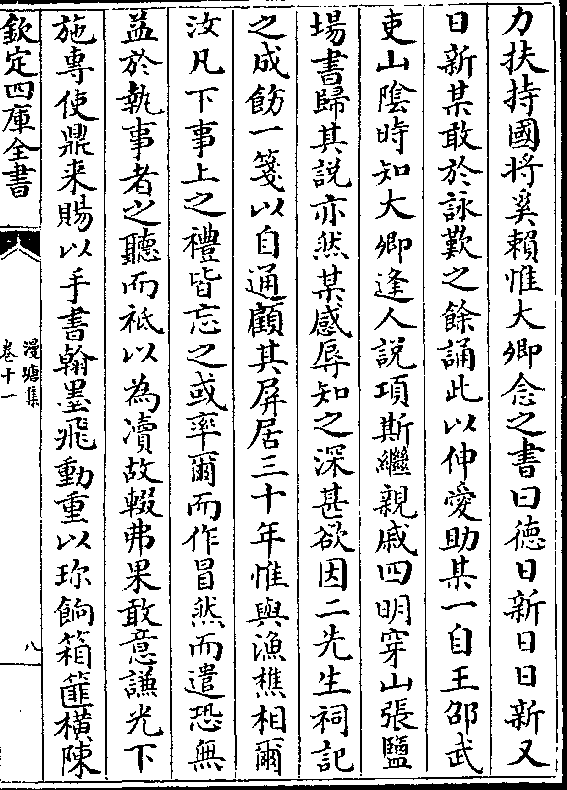 力扶持國將奚賴惟大卿念之書曰德日新日日新又
日新某敢於詠歎之餘誦此以伸愛助某一自王邵武
吏山陰時知大卿逢人說項斯繼親戚四明穿山張鹽
場書歸其說亦然某感辱知之深甚欲因二先生祠記
之成飭一箋以自通顧其屏居三十年惟與漁樵相爾
汝凡下事上之禮皆忘之或率爾而作冒然而遣恐無
益於執事者之聽而祗以為凟故輟弗果敢意謙光下
施專使鼎来賜以手書翰墨飛動重以珎餉箱篚橫陳
欽定四庫全書
漫塘集
卷十一
八